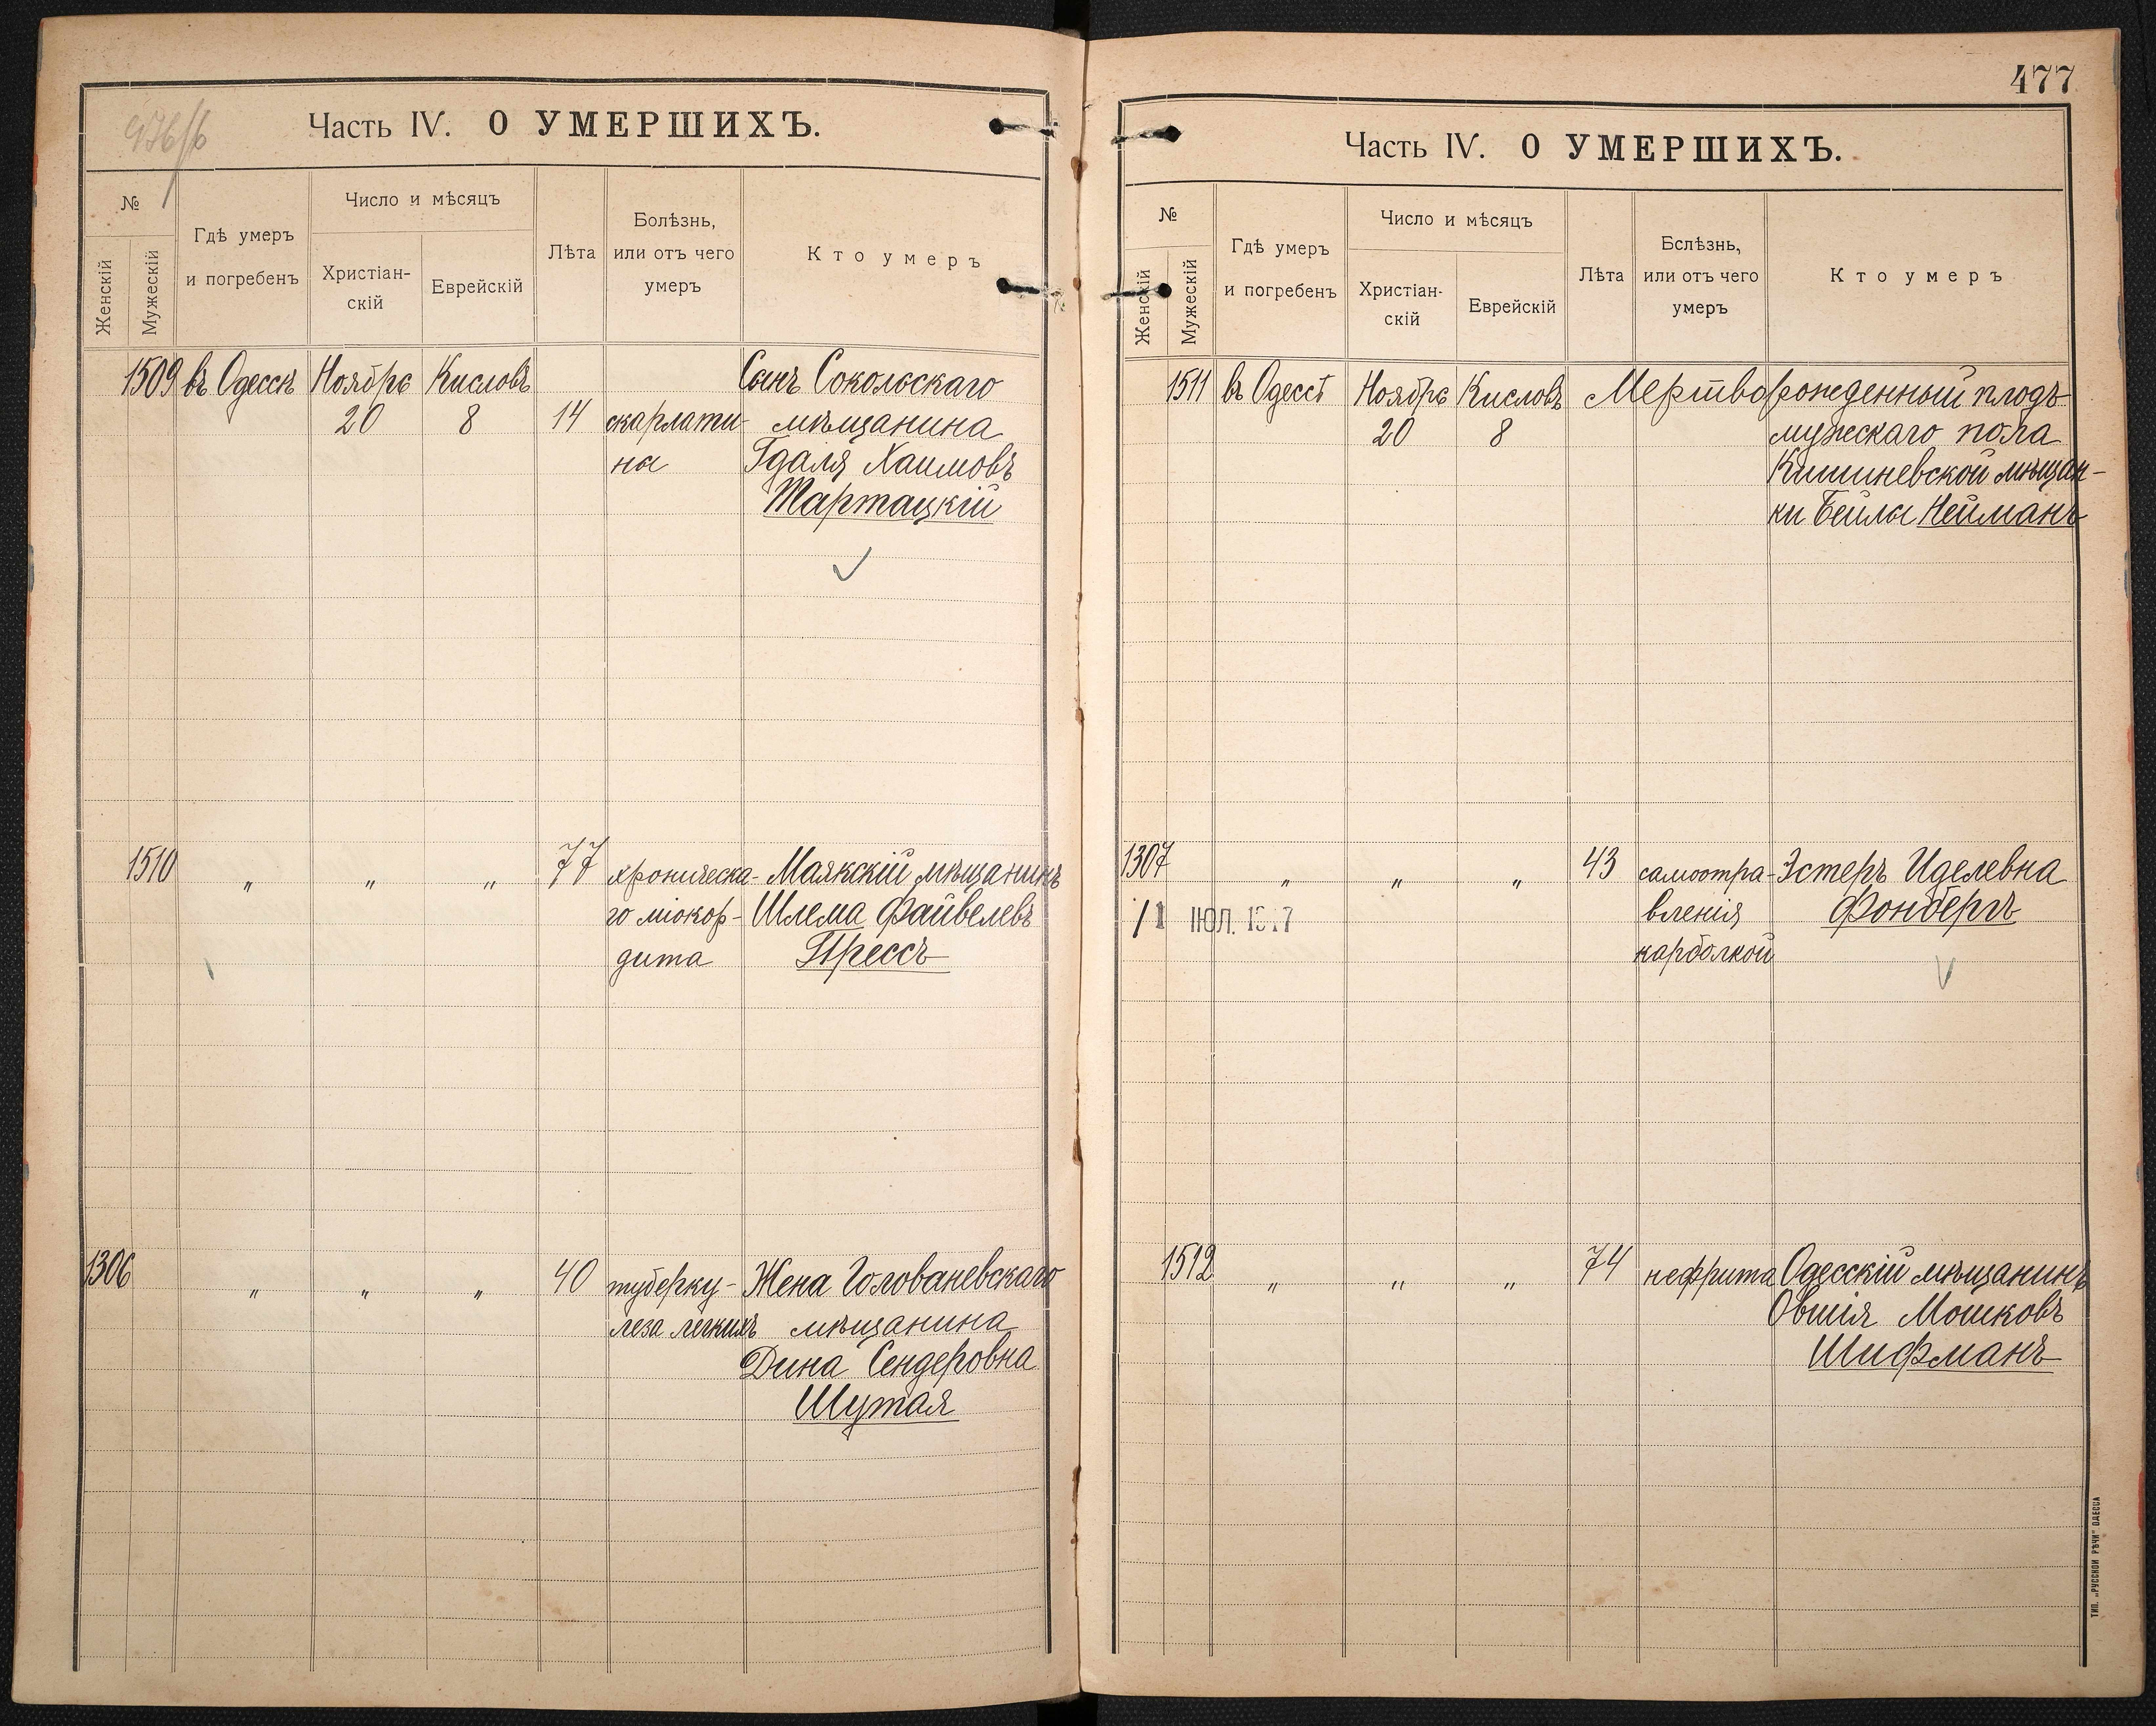 476/б
Часть IV. О УМЕРШИХЪ.
№
Женскій
Мужескій
Гдѣ умеръ
и погребенъ
Число и мѣсяцъ
Христіан-
скій
Еврейскій
Лѣта
Болѣзнь,
или отъ чего
умеръ
Кто умеръ
1509 въ Одессѣ Ноября Кисловъ Сынъ Сокольскаго
20 8 14 скарлати- мѣщанина
на Гдаля Хаимовъ
Тартацкій
1510 " " " 77 хроническа- Маякскій мѣщанинъ
го міокор- Шлема Файвелевъ
дита Прессъ
1306 " " " 40 туберку- Жена Голованевскаго
леза легкихъ мѣщанина
Дина Сендеровна
Шутая
477
Часть IV. О УМЕРШИХЪ.
№
Женскій
Мужескій
Гдѣ умеръ
и погребенъ
Число и мѣсяцъ
Христіан-
скій
Еврейскій
Лѣта
Бслѣзнь,
или отъ чего
умеръ
Кто умеръ
1511 въ Одессѣ Ноября Кисловъ Мертворожденный плодъ
20 8 мужскаго пола
Кишиневской мѣщан-
ки Бейлы Нейманъ
1307 " " " 43 самоотра- Эстеръ Иделевна
/1 ИЮЛ. 1917 вленія Фонбергъ
карболкой
1512 " " " 74 нефрита Одесскій мѣщанинъ
Овшія Мошковъ
Шифманъ
ТИП. „РУССКОЙ РѢЧИ" ОДЕССА